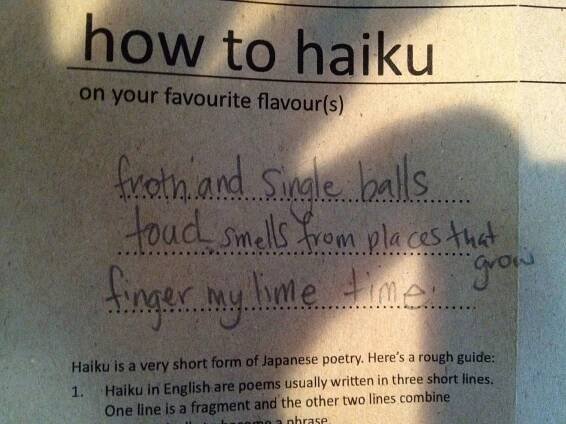 how to haiku
on your favourite flavour(s)
froth and single balls
touch smells from places that
grow
finger my lime time.
Haiku is a very short form of Japanese poetry. Here's a rough guide:
1. Haiku in English are poems usually written in three short lines.
One line is a fragment and the other two lines combine
phrase